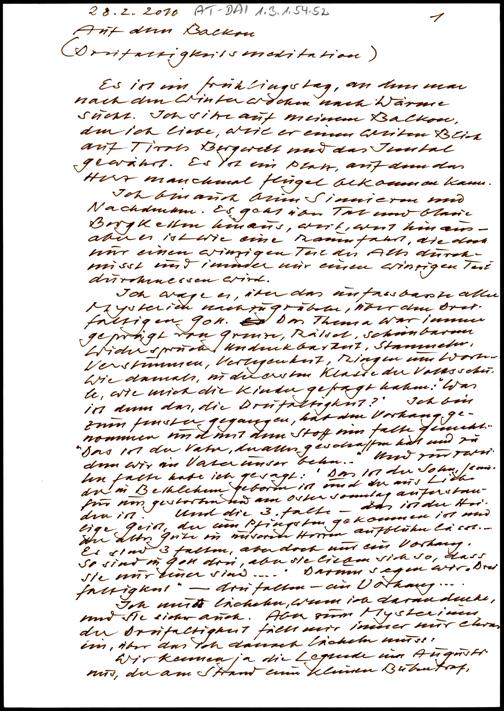 28.2.2010 AT-DAI 1.3.1.54.52 1
Auf dem Balkon
(Dreifaltigkeitsmeditation)
Es ist ein Frühlingstag, an dem man
nach den Winterwochen nach Wärme
sucht. Ich sitze auf meinem Balkon,
den ich liebe, weil er einen weiten Blick
auf Tirols Bergwelt und das Inntal
gewährt. Es ist ein Platz, auf dem das
Herz manchmal Flügel bekommen kann.
Ich bin auch beim Sinnieren und
Nachdenken. Es geht über Tal und blaue
Bergketten hinaus, weit, weit hinaus -
aber es ist wie eine Raumfahrt, die doch
nur einen winzigen Teil des Alls durch-
misst und immer nur einen winzigen Teil
durchmessen wird.
Ich wage es, über das unfassbarste aller
Mysterien nachzugrübeln, über den Drei-
faltigen Gott. Das Thema war immer
geprägt von Grenze, Rätsel, scheinbarem
Widerspruch, Undenkbarkeit, Stammeln,
Verstummen, Verlegenheit, Ringen um Worte
wie damals, in der ersten Klasse der Volksschu-
le, wie mich die Kinder gefragt haben: "Was
ist denn das, die Dreifaltigkeit?" Ich bin
zum Fenster gegangen, hab den Vorhang ge-
nommen und mit dem Stoff eine Falte gemacht:
"Das ist der Vater, der alles geschaffen hat und zu
dem wir im Vaterunser beten.." Und zur zwei-
ten Falte habe ich gesagt: "Das ist der Sohn, Jesus,
der in Bethlehem geboren ist und der aus Liebe
für uns gestorben und am Ostersonntag auferstan-
den ist. Und die 3. Falte - das ist der Hei-
lige Geist, der zu Pfingsten gekommen ist und
der alles Gute in unseren Herzen aufblühen lässt.-
Es sind 3 Falten, aber doch nur ein Vorhang.
So sind in Gott drei, aber sie lieben sich so, dass
sie nur einer sind .... Darum sagen wir "Drei
faltigkeit" - drei Falten - ein Vorhang ....
Ich muß lächeln, wenn ich daran denke,
und Sie sicher auch. Aber zum Mysterium
der Dreifaltigkeit fällt mir immer nur etwas
ein, über das ich danach lächeln muss:
Wir kennen ja die Legende von Augusti-
nus, der am Strand einen kleinen Buben traf,